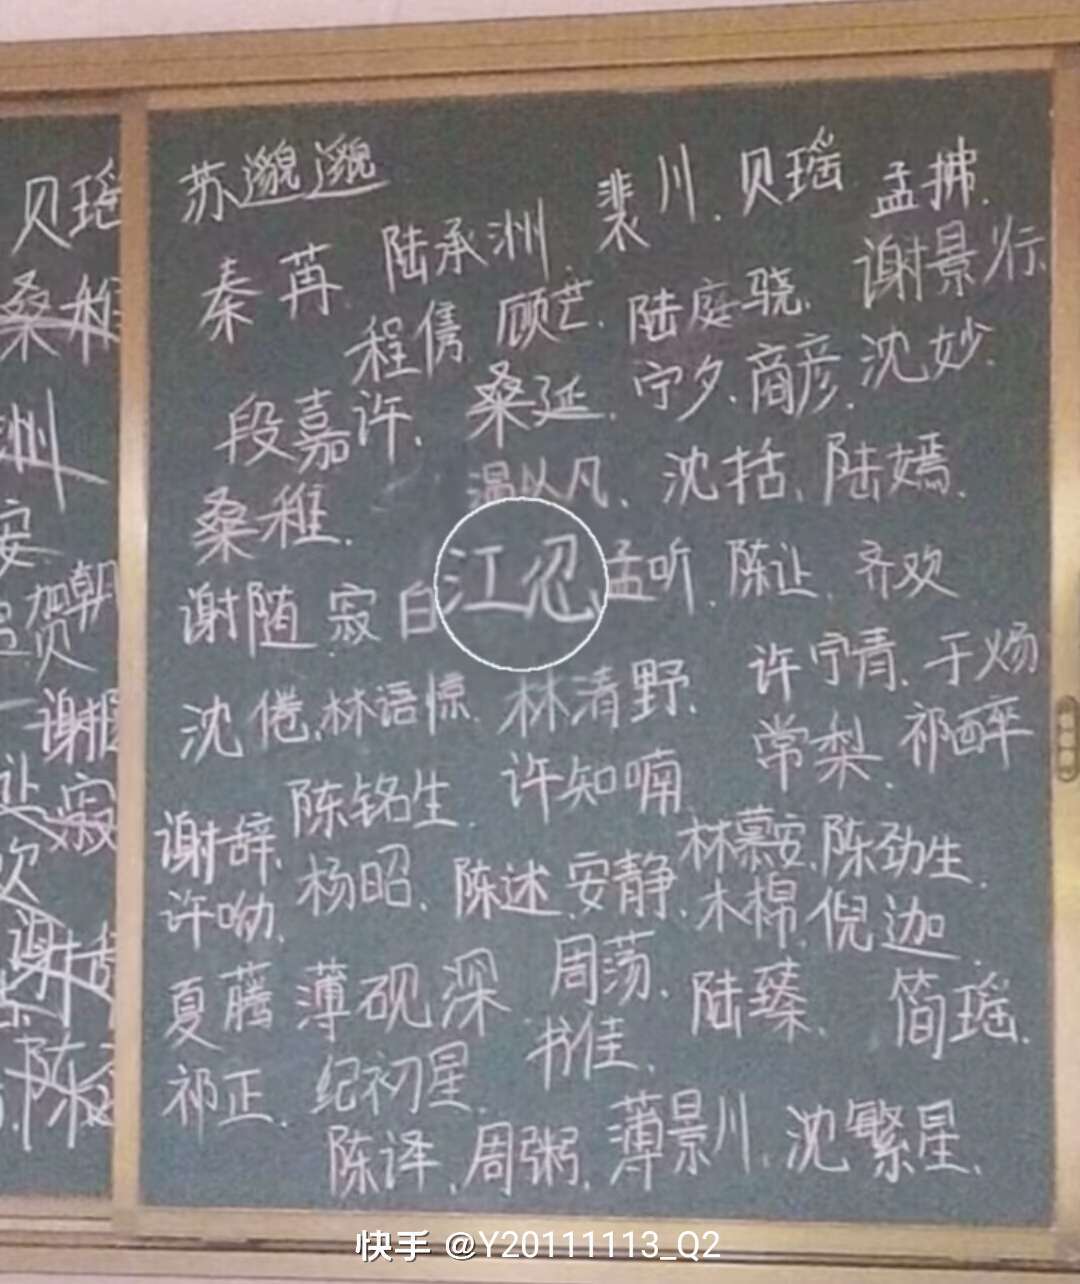 贝瑶
桑稚
洲
安
贺朝
谢
让 寂
欢
谢
陈
苏邈邈
裴川. 贝瑶 孟拂.
秦苒 陆承洲 谢景行.
程隽 顾芒. 陆庭骁.
段嘉许. 桑延. 宁夕. 商彦. 沈妙.
桑稚. 温以凡. 沈括. 陆嫣.
谢随 寂白 江忍. 孟听. 陈让. 齐欢
沈倦. 林语惊. 林清野. 许宁青. 于炀
常梨. 祁醉
谢辞. 陈铭生. 许知喃
许呦. 杨昭. 陈述. 安静. 林慕安. 陈劲生.
木棉. 倪迦
夏藤 薄砚深 周荡. 陆臻. 简瑶.
祁正. 纪初星. 书佳.
陈译. 周粥. 薄景川. 沈繁星.
快手 @Y20111113_Q2